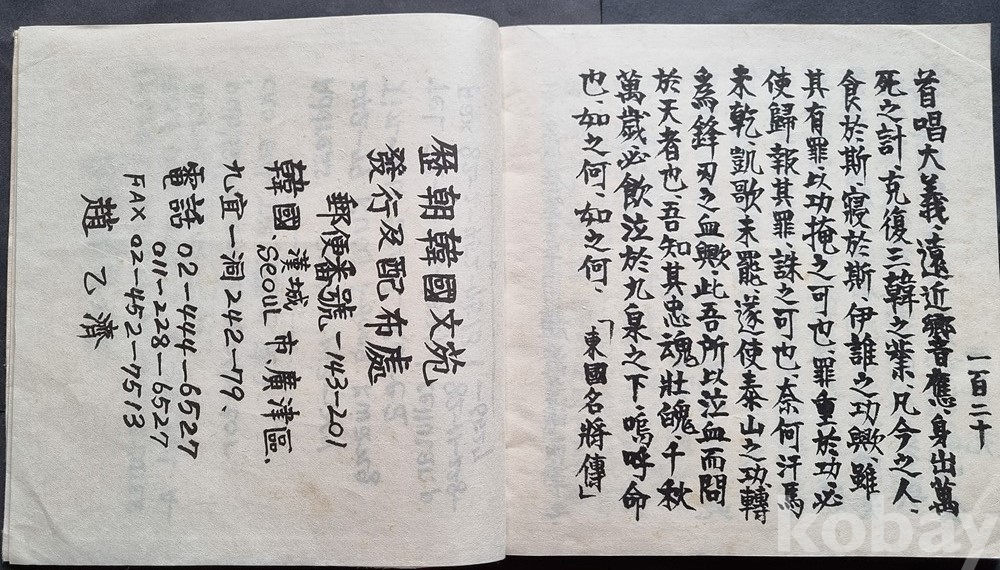 一百二十
首唱大義、遠近響應、身出萬
死之計、克復三韓之業、凡今之人、
食於斯、寢於斯、伊誰之功歟、雖
其有罪、以功掩之可也、罪重於功、必
使歸報其罪、誅之可也、奈何汗馬
未乾、凱歌未罷、遂使泰山之功、轉
爲鋒刃之血歟、此吾所以泣血而問
於天者也、吾知其忠魂壯魄、千秋
萬歲、必飲泣於九泉之下、嗚呼命
也、如之何、如之何、「東國名將傳」
歷朝韓國文苑
發行及配布處
郵便番號-143-201
韓國、漢城 Seoul 市、廣津區、
九宜一洞 242-79.
電話 02-444-6527
011-228-6527
FAX 02-452-7513
趙 乙 濟
kobay